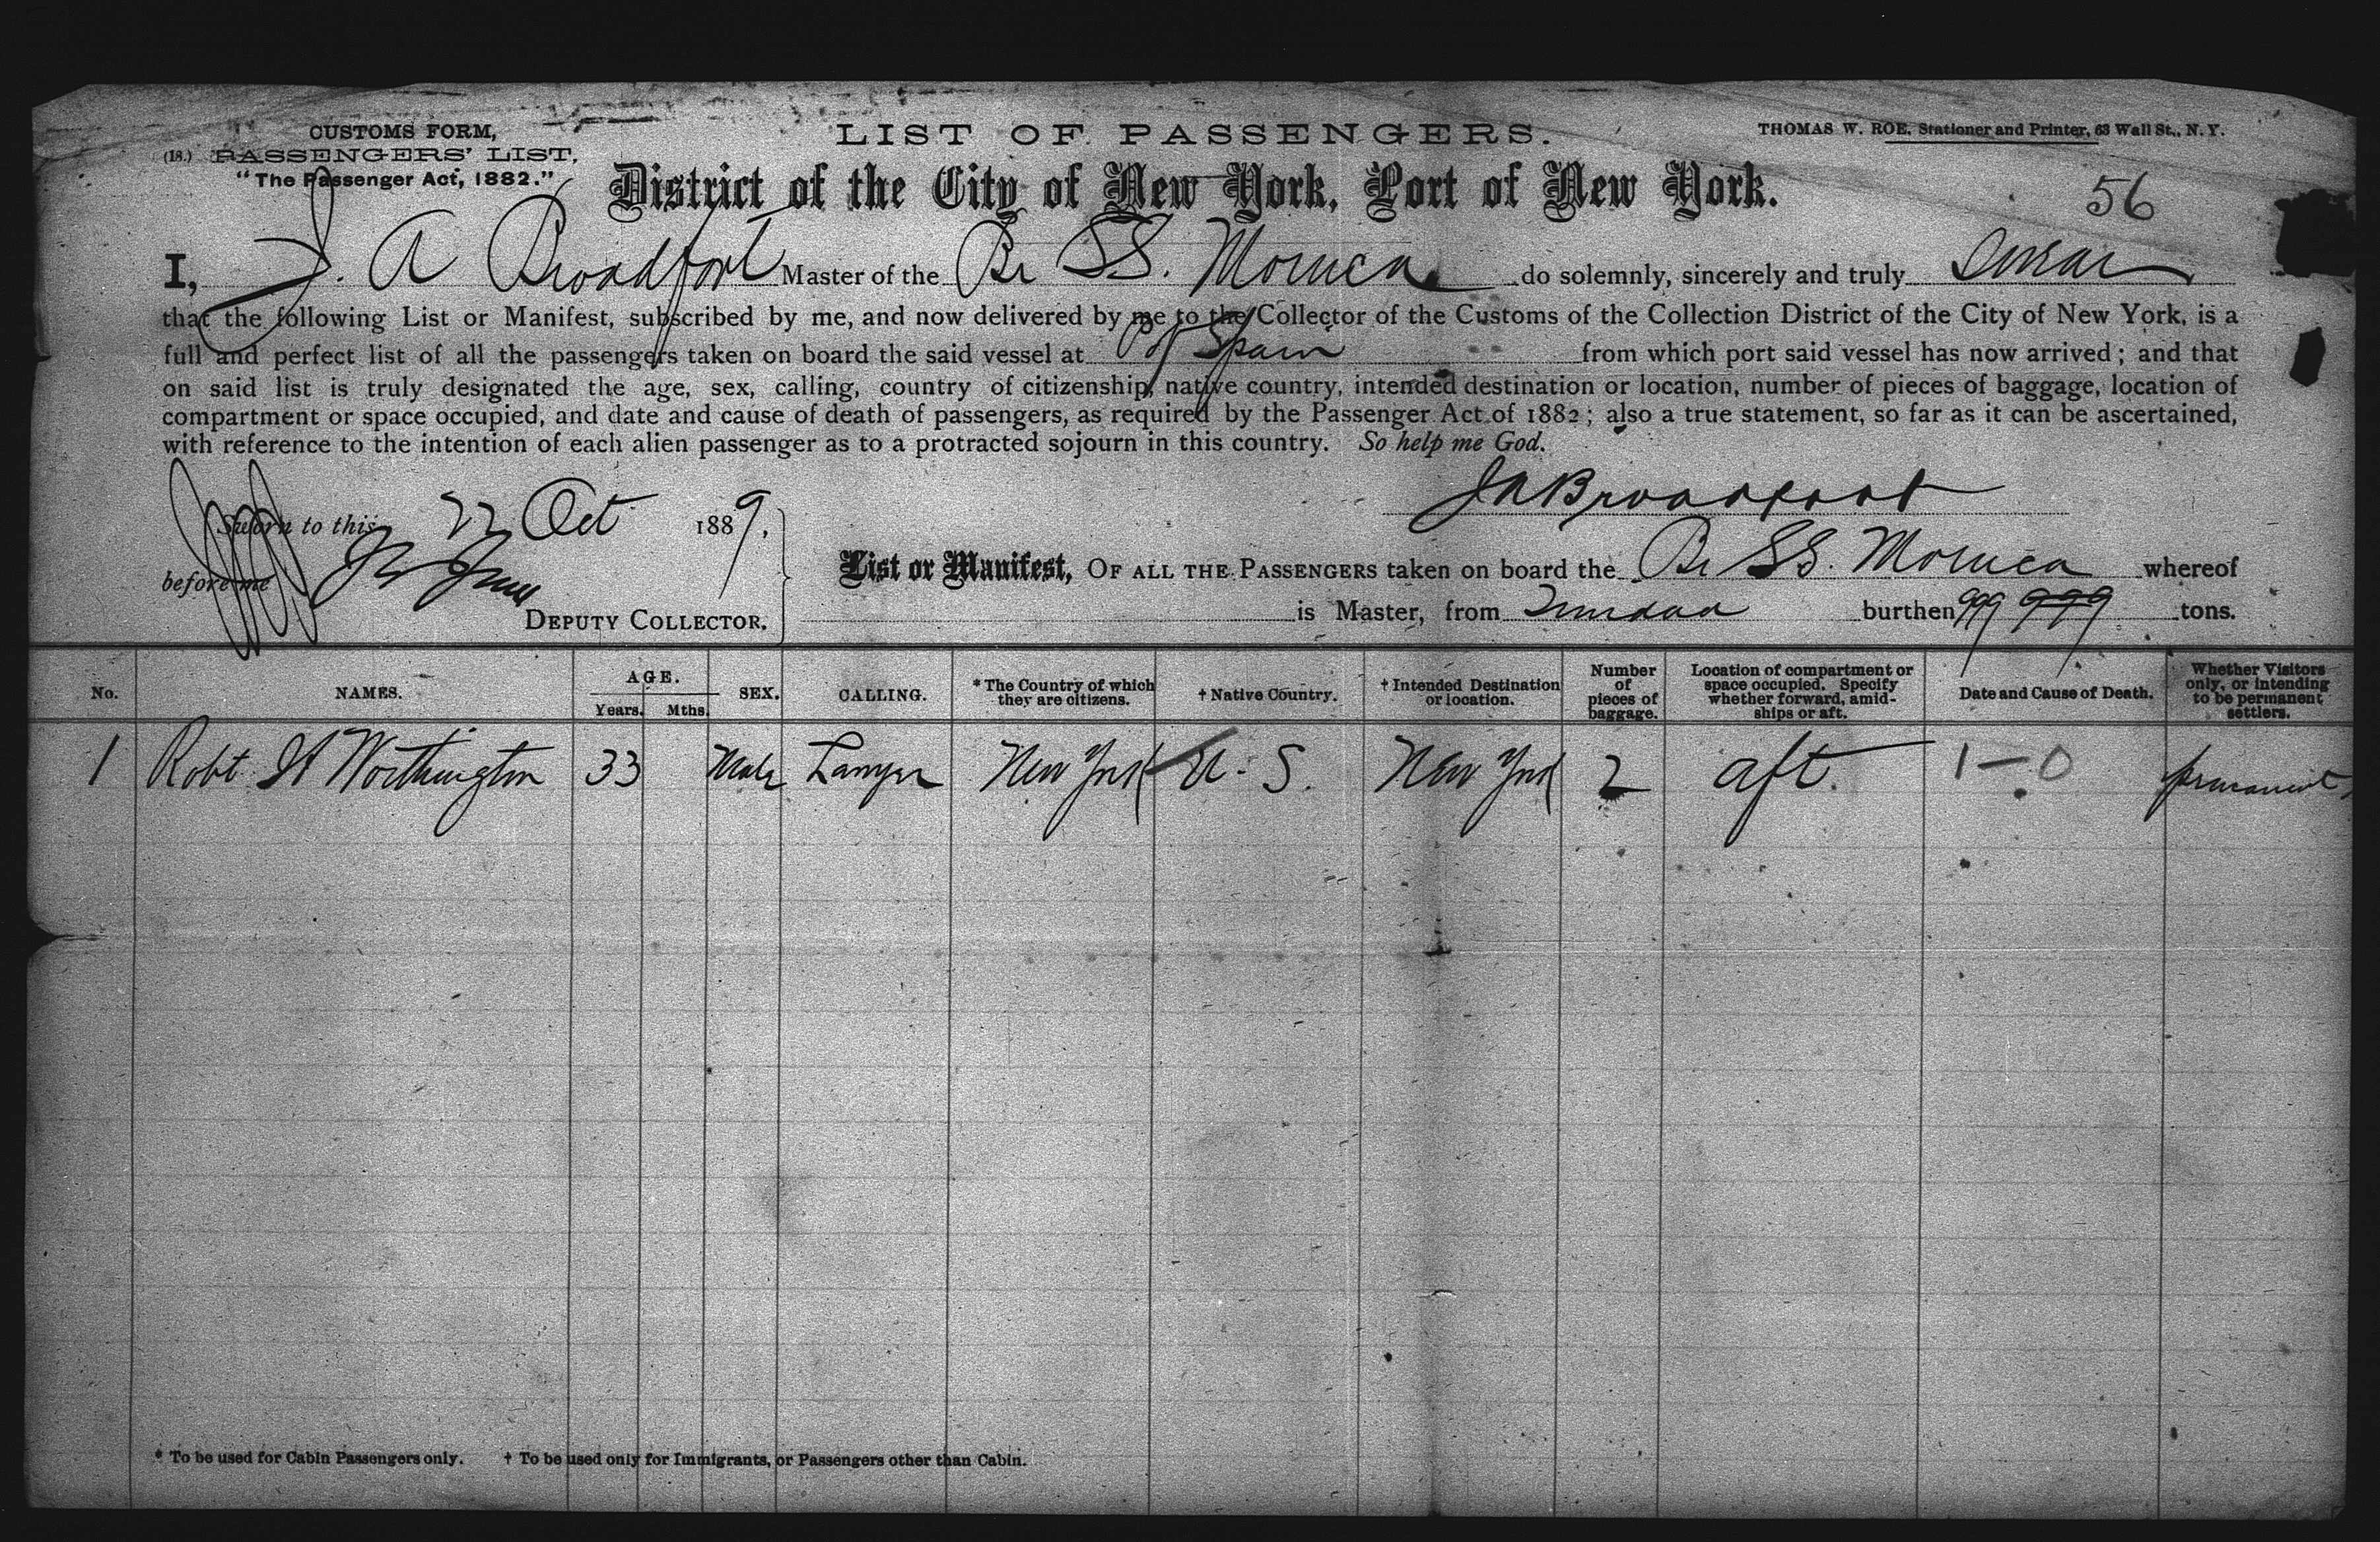 CUSTOMS FORM,
(18.) PASSENGERS' LIST,
"The Passenger Act, 1882."
LIST OF PASSENGERS.
THOMAS W. ROE, Stationer and Printer, 63 Wall St., N. Y.
District of the City of New York, Port of New York.
56
I, J. A Broadfoot Master of the Br SS. Monica do solemnly, sincerely and truly swear
that the following List or Manifest, subscribed by me, and now delivered by me to the Collector of the Customs of the Collection District of the City of New York, is a
full and perfect list of all the passengers taken on board the said vessel at Pt Spain from which port said vessel has now arrived; and that
on said list is truly designated the age, sex, calling, country of citizenship, native country, intended destination or location, number of pieces of baggage, location of
compartment or space occupied, and date and cause of death of passengers, as required by the Passenger Act of 1882; also a true statement, so far as it can be ascertained,
with reference to the intention of each alien passenger as to a protracted sojourn in this country. So help me God.
JABroadfoot
Sworn to this 22 Oct 1889.
before me
DEPUTY COLLECTOR.
List or Manifest, OF ALL THE PASSENGERS taken on board the Br SS. Monica whereof
is Master, from Trinidad burthen 999 999 tons.
No. NAMES. AGE. Years. Mths. SEX. CALLING. * The Country of which they are citizens. † Native Country. † Intended Destination or location. Number of pieces of baggage. Location of compartment or space occupied. Specify whether forward, amid-ships or aft. Date and Cause of Death. Whether Visitors only, or intending to be permanent settlers.
1 Robt Worthington 33 Male Lawyer New York U. S. New York 2 aft. 1-0 permanent
* To be used for Cabin Passengers only. † To be used only for Immigrants, or Passengers other than Cabin.